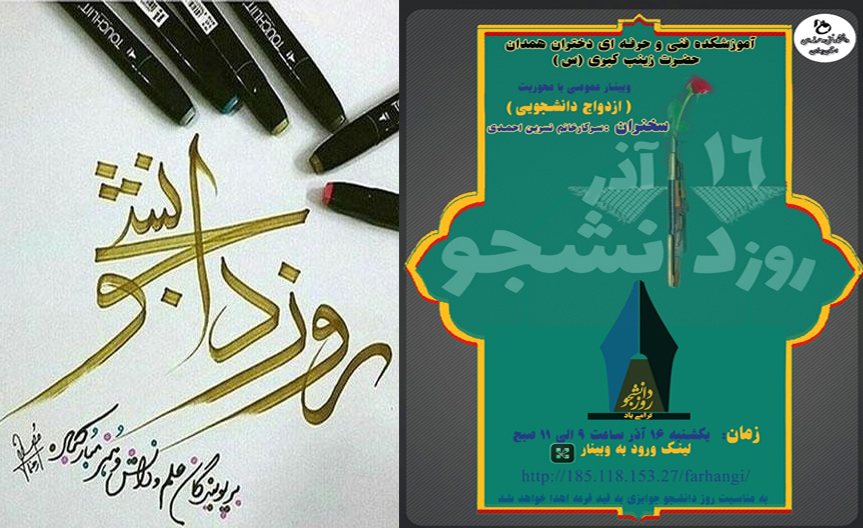 TOUCHLIIT
TOUCHLIIT
TOUCHLIIT
روز دانشجو
بر پویندگان علم و دانش و هنر مبارکباد
آموزشکده فنی و حرفه ای دختران همدان
حضرت زینب کبری (س)
وبینار عمومی با محوریت
(ازدواج دانشجویی)
سخنران :سرکارخانم نسرین احمدی
۱۶ آذر
روز دانشجو
روز دانشجو
گرامی باد
زمان: یکشنبه ۱۶ آذر ساعت ۹ الی ۱۱ صبح
لینک ورود به وبینار
http://185.118.153.27/farhangi/
به مناسبت روز دانشجو جوایزی به قید قرعه اهدا خواهد شد